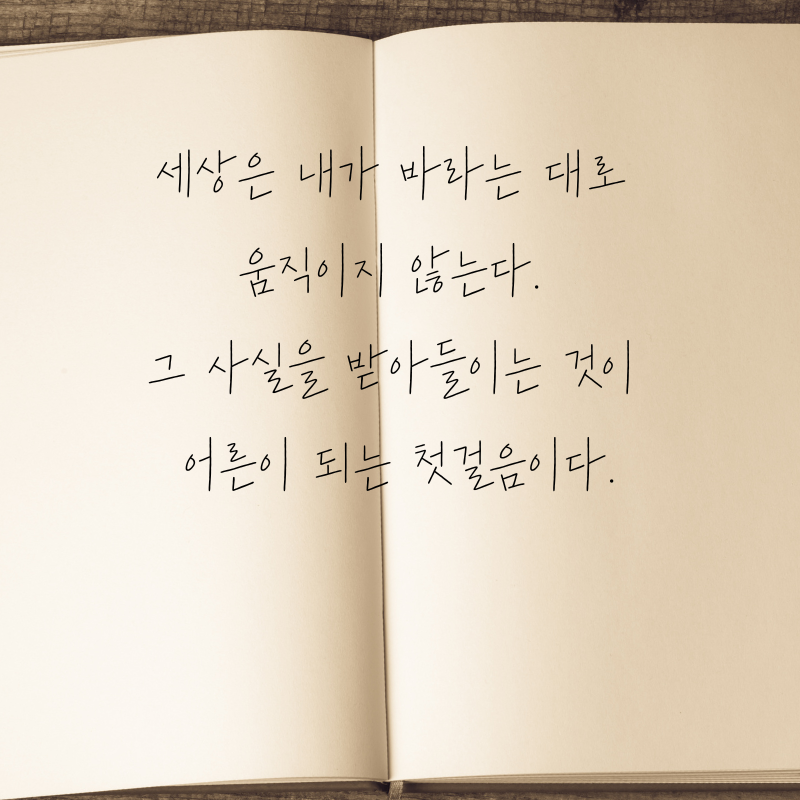 세상은 내가 바라는 대로
움직이지 않는다.
그 사실을 받아들이는 것이
어른이 되는 첫걸음이다.